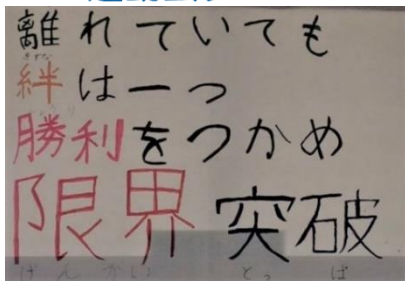 離れていても
きずな
絆は一つ
勝利をつかめ
限界突破
げんかい とっぱ